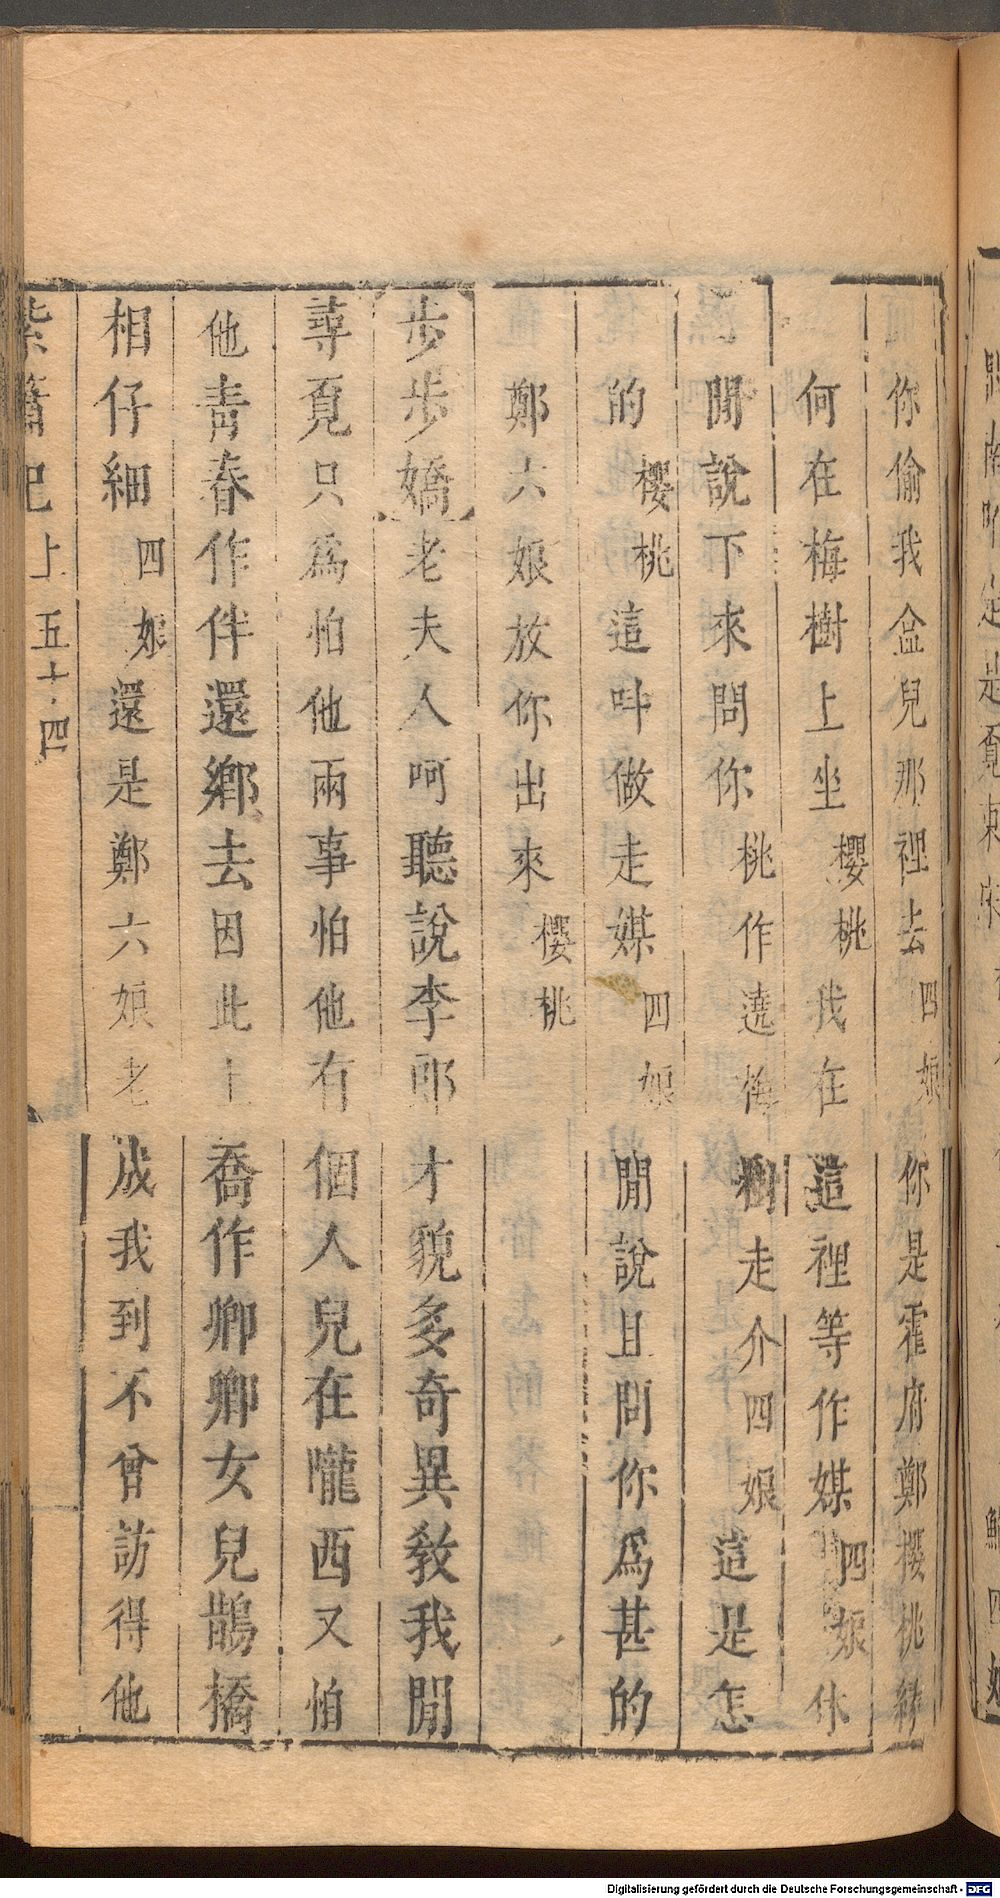 你偷我盆兒那裡去四娘你是霍府鄭櫻桃
何在梅樹上坐櫻桃我在這裡等作媒四娘休
閒說下來問你桃作遶梅樹走介四娘這是怎
的櫻桃這呌做走媒四娘閒說且問你爲甚的
鄭六娘放你出來櫻桃
步步嬌老夫人呵聽說李郎才貌多奇異敎我閒
尋覔只爲怕他兩事怕他有個人兒在嚨西又怕
他青春作伴還鄉去因此上喬作卿卿女兒鵲橋
相仔細四娘還是鄭六娘老成我到不曾訪得他
紫簫記上五十四
Digitalisierung gefördert durch die Deutsche Forschungsgemeinschaft - DFG